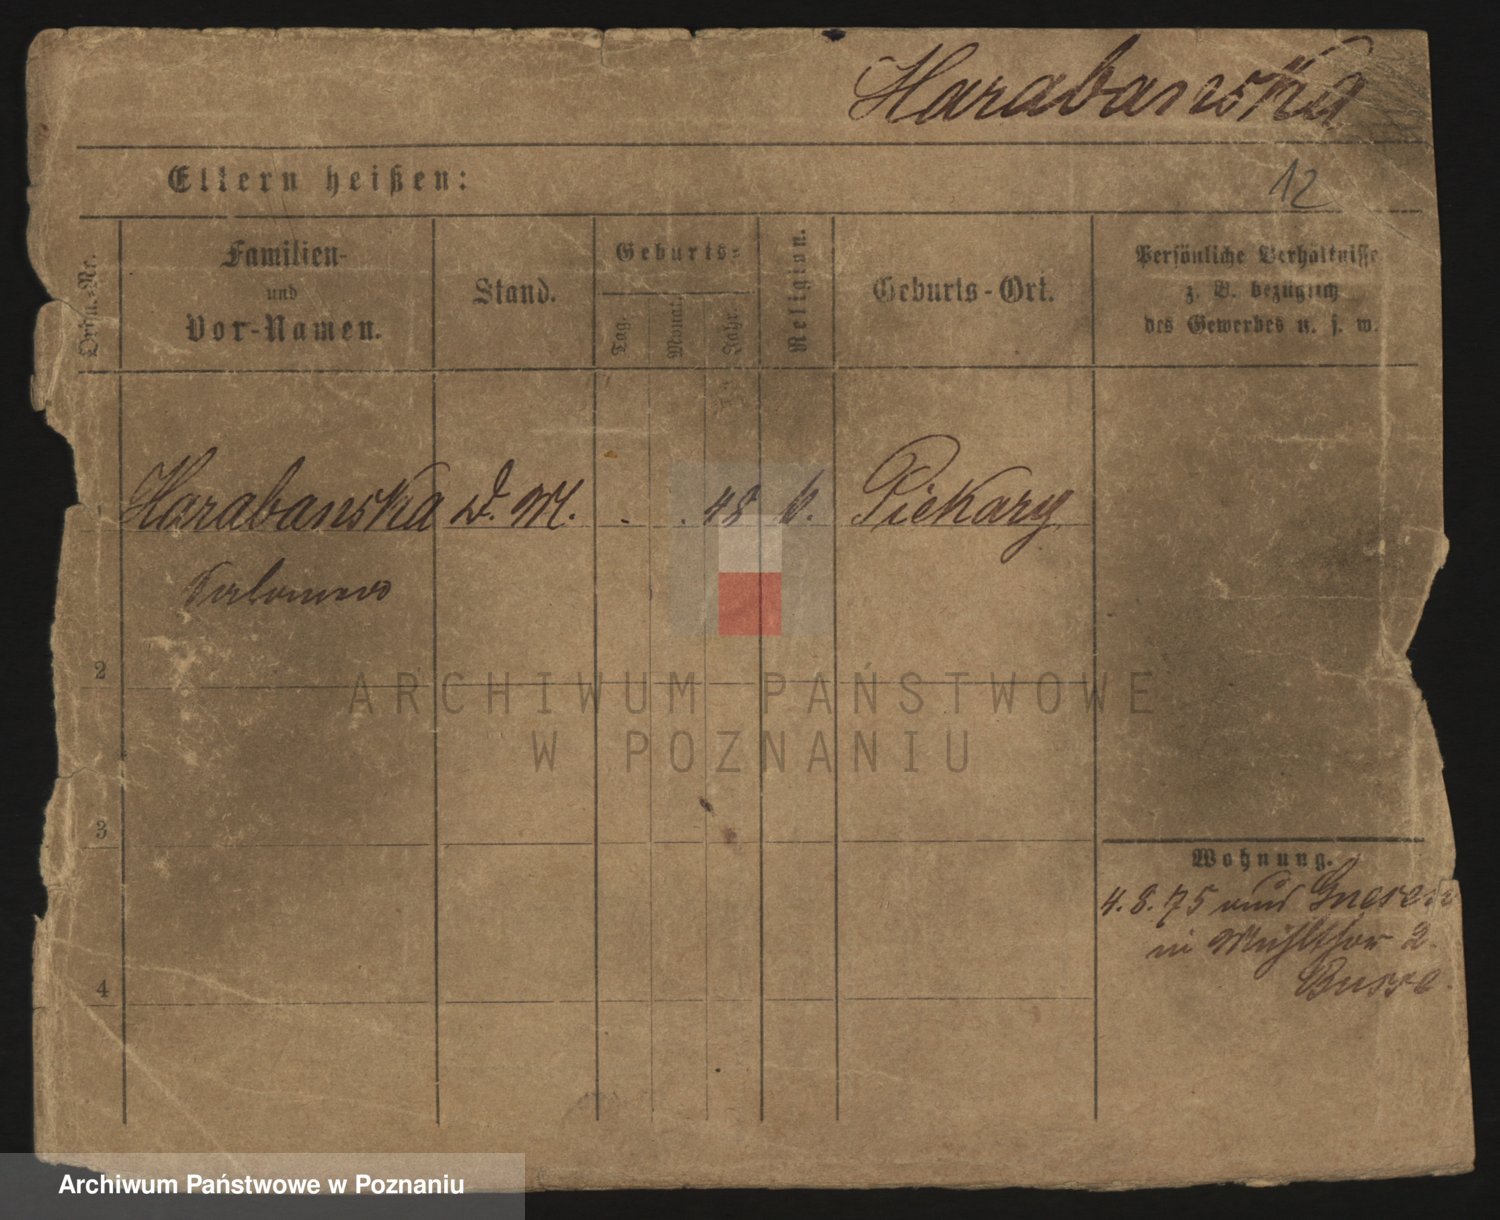 Harabanska
12
Eltern heißen:
Ordn.-Nr.
Familien-
und
Vor-Namen.
Stand.
Geburts-
Tag.
Monat.
Jahr.
Religion.
Geburts-Ort.
Persönliche Verhältnisse
z. B. bezüglich
des Gewerbes u. s. w.
1
Harabanska D. M. . . 48 k. Piekary
Salomea
2
3
4
Wohnung.
4. 8. 75 aus Gnesen
in Mühlthor 2.
Busse.
ARCHIWUM PAŃSTWOWE
W POZNANIU
Archiwum Państwowe w Poznaniu